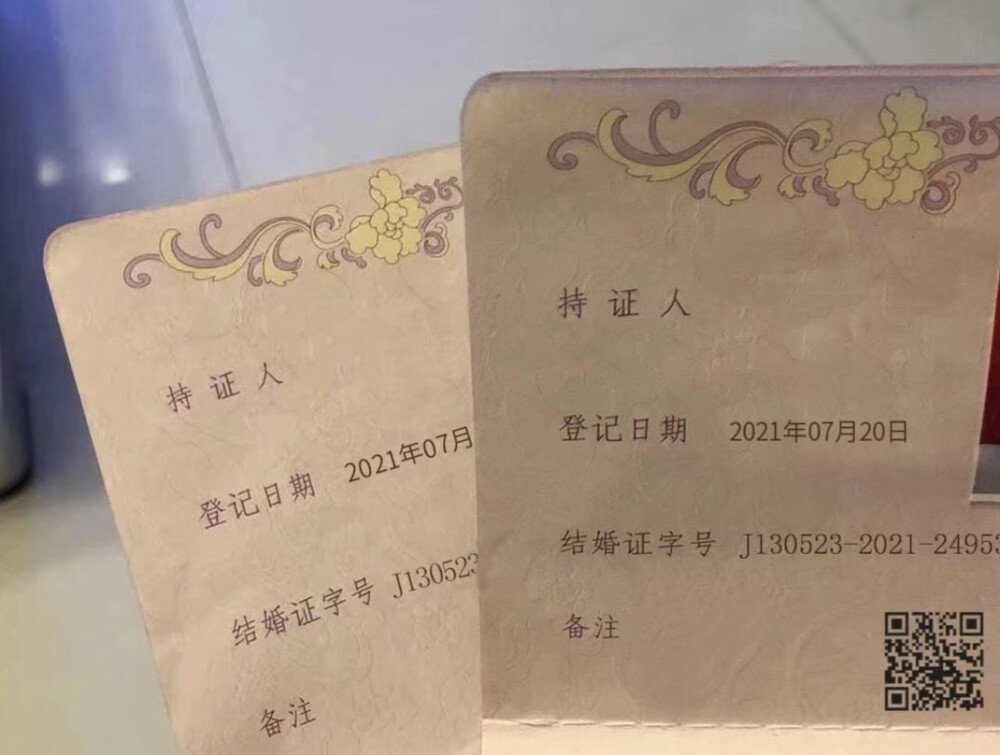 持证人
登记日期 2021年07月20日
结婚证字号 J130523-2021-24953
备注
持证人
登记日期 2021年07月
结婚证字号 J130523
备注